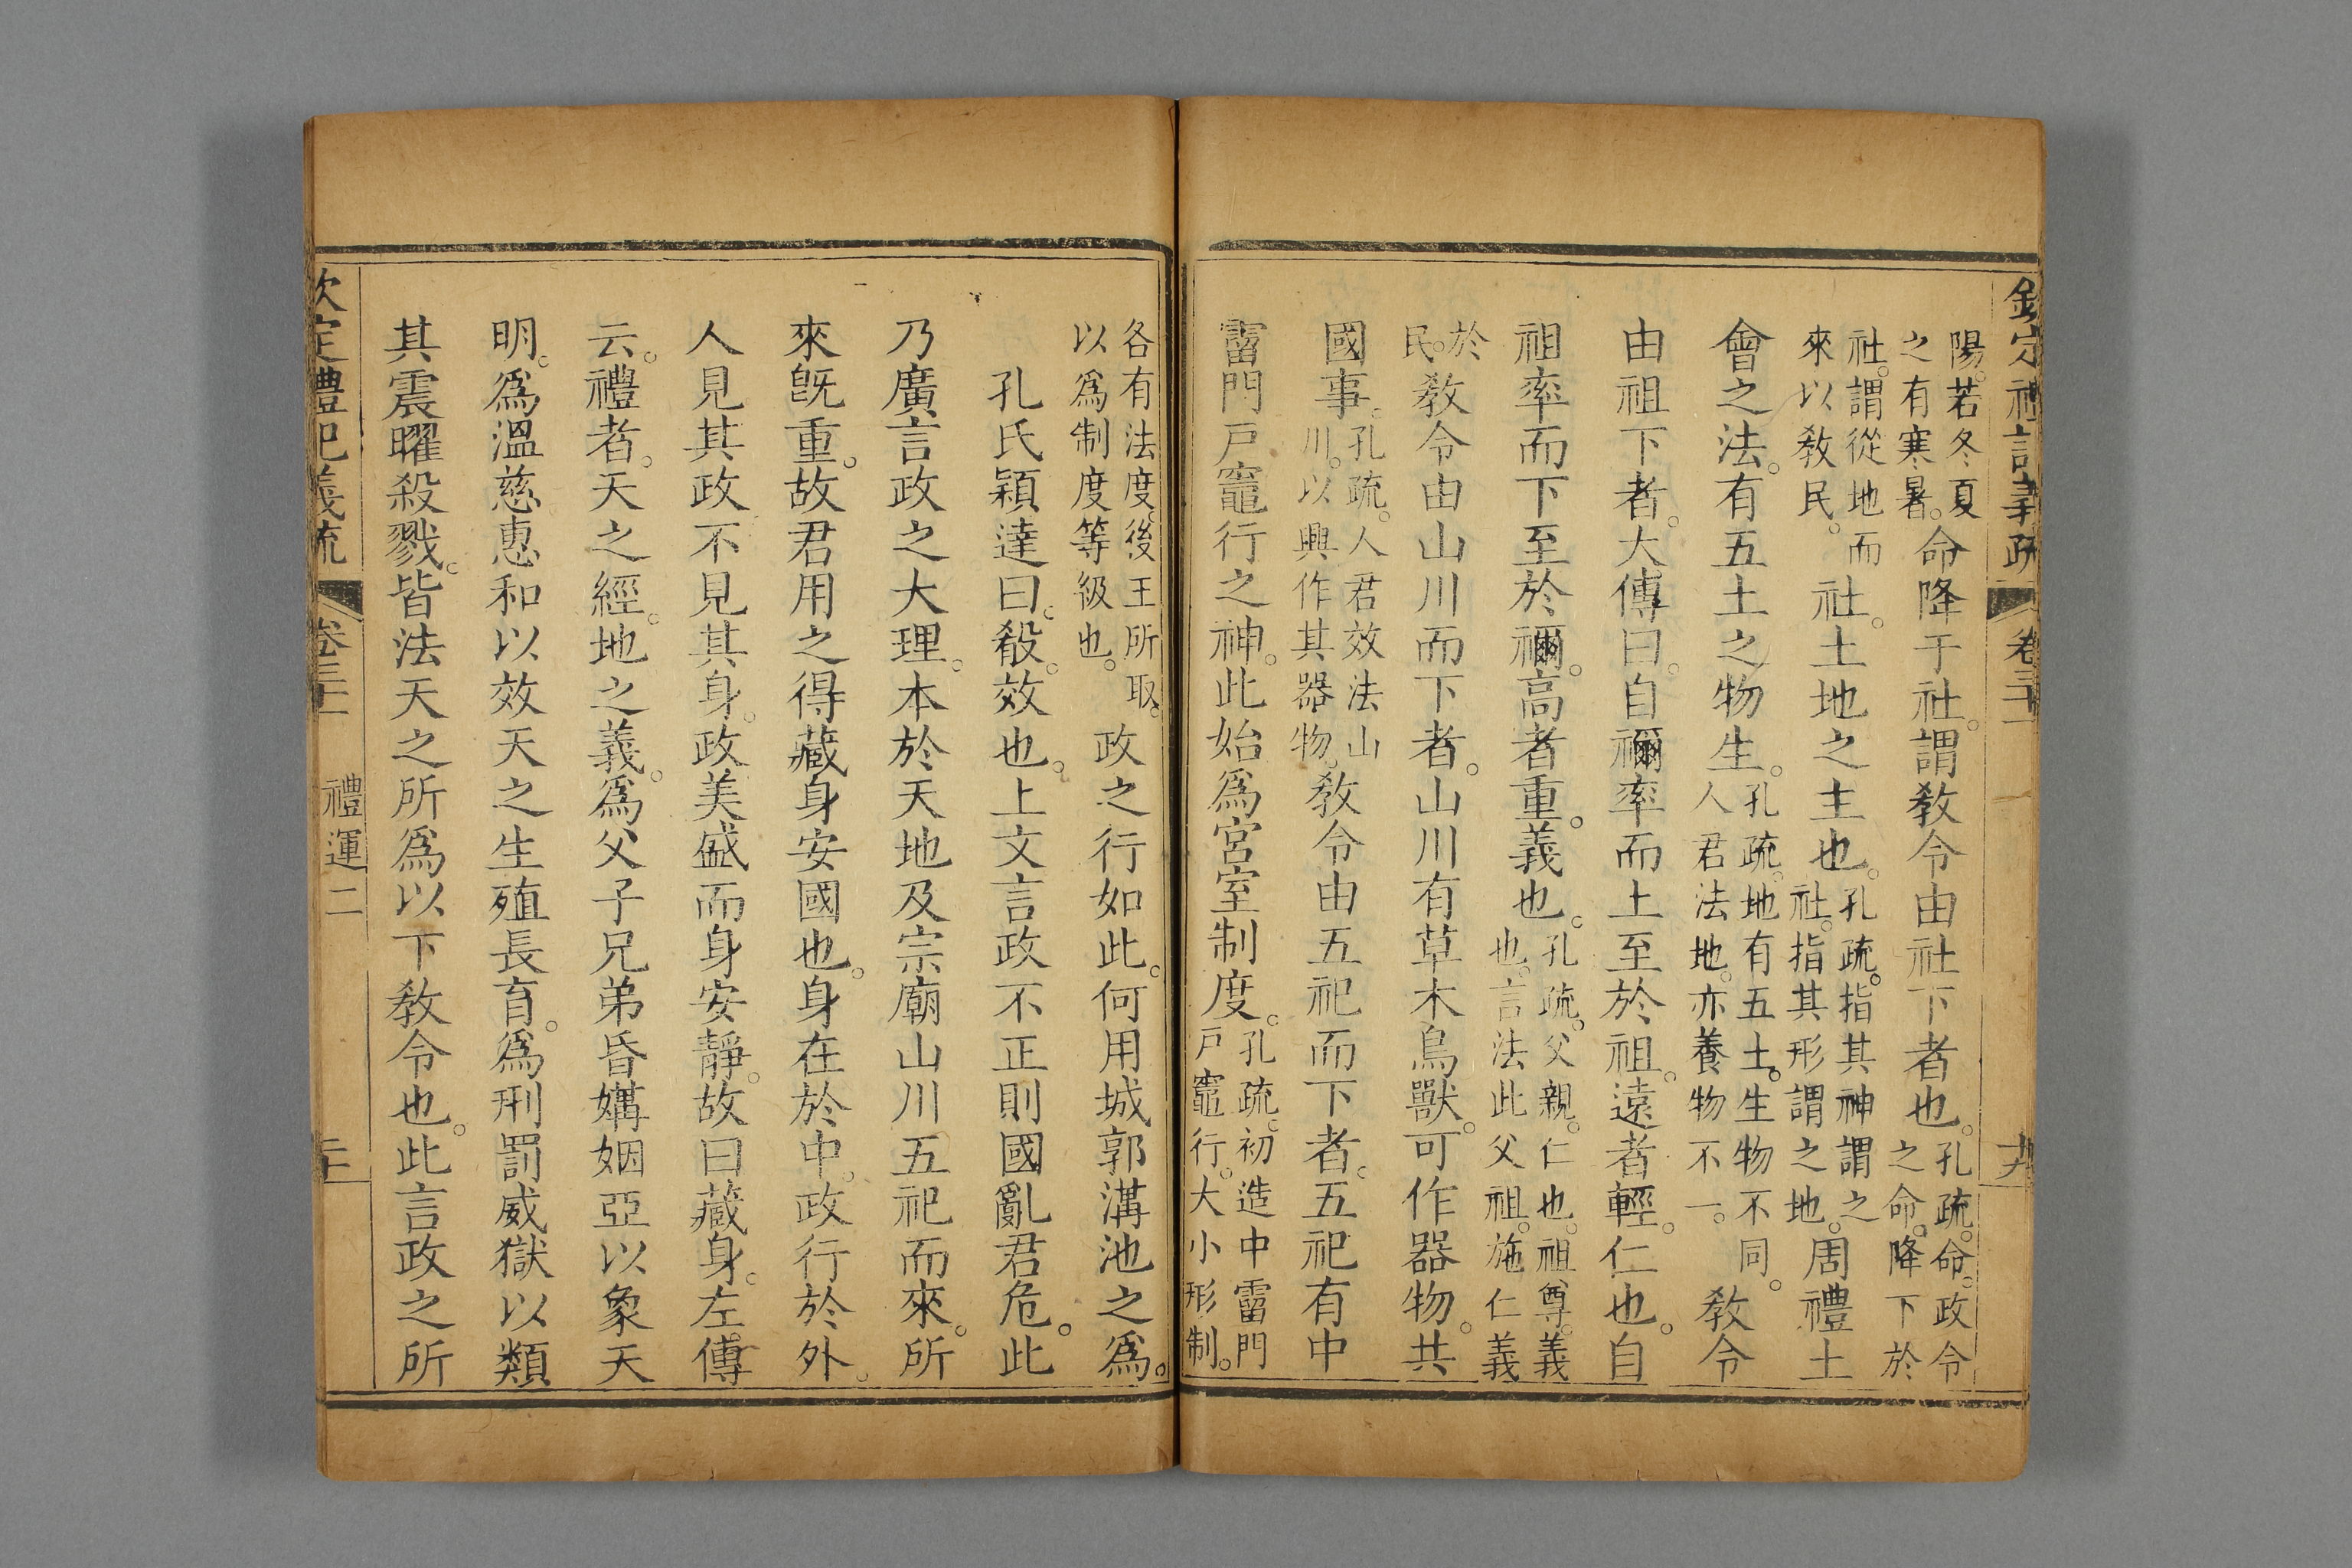 欽定禮記義疏 卷三十一 十九
陽。若冬夏之有寒暑。命降于社。謂敎令由社下者也。孔疏。命。政令之命。降下於
社。謂從地而來以敎民。社。土地之主也。孔疏。指其神謂之社。指其形謂之地。周禮土
會之法。有五土之物生。孔疏。地有五土。生物不同。人君法地。亦養物不一。敎令
由祖下者。大傳曰。自禰率而上至於祖。遠者輕。仁也。自
祖率而下至於禰。高者重。義也。孔疏。父親。仁也。祖尊。義也。言法此父祖。施仁義
於民。敎令由山川而下者。山川有草木鳥獸。可作器物。共
國事。孔疏。人君效法山川。以興作其器物。敎令由五祀而下者。五祀有中
霤門戸竈行之神。此始爲宮室制度。孔疏。初造中霤門戸竈行。大小形制。
各有法度。後王所取。以爲制度等級也。政之行如此。何用城郭溝池之爲。
孔氏穎達曰。殽。效也。上文言政不正則國亂君危。此
乃廣言政之大理。本於天地及宗廟山川五祀而來。所
來旣重。故君用之得藏身安國也。身在於中。政行於外。
人見其政不見其身。政美盛而身安靜。故曰藏身。左傳
云。禮者。天之經。地之義。爲父子兄弟昏媾姻亞以象天
明。爲溫慈惠和以效天之生殖長育。爲刑罰威獄以類
其震曜殺戮。皆法天之所爲以下敎令也。此言政之所
欽定禮記義疏 卷三十一 禮運二 二十